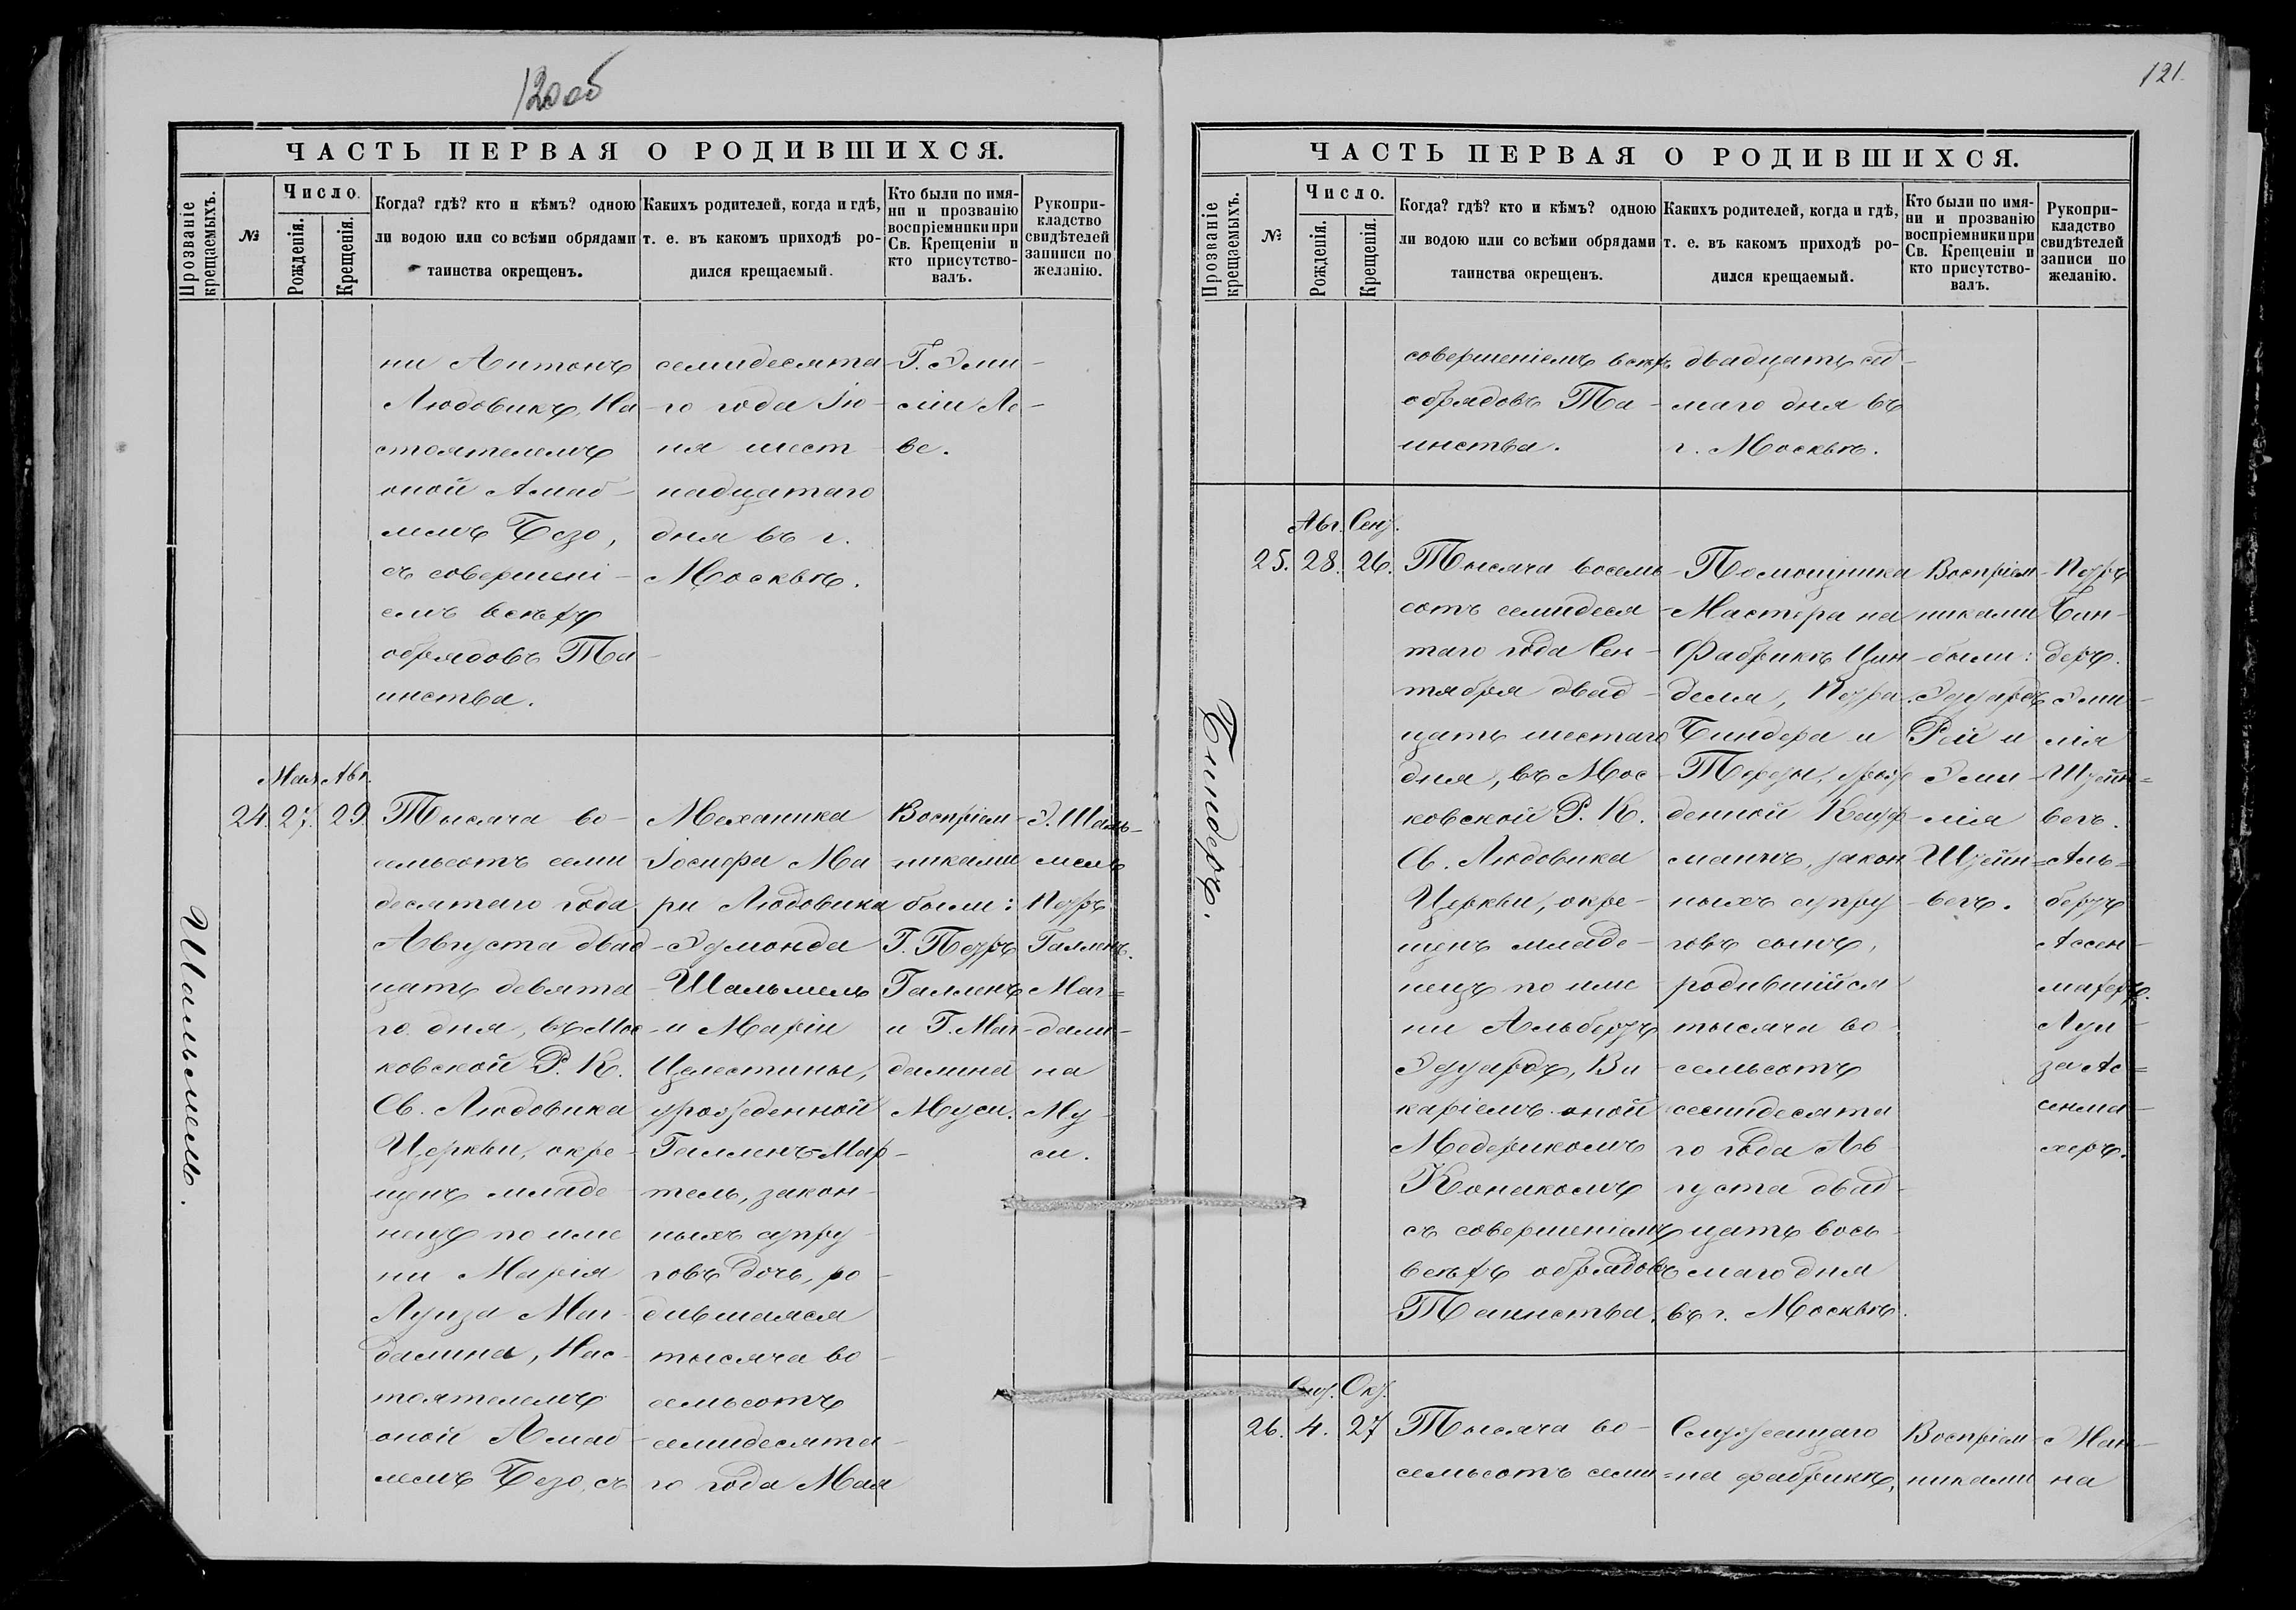 120 об
ЧАСТЬ ПЕРВАЯ О РОДИВШИХСЯ.
Прозваніе крещаемыхъ.
№
Число.
Рожденія.
Крещенія.
Когда? гдѣ? кто и кѣмъ? одною
ли водою или со всѣми обрядами
таинства окрещенъ.
Какихъ родителей, когда и гдѣ,
т. е. въ какомъ приходѣ ро-
дился крещаемый.
Кто были по имя-
ни и прозванію
воспріемники при
Св. Крещеніи и
кто присутство-
валъ.
Рукопри-
кладство
свидѣтелей
записи по
желанію.
ни Антонъ
Людовикъ, На
стоятелемъ
оной Амад-
мемъ Безо,
съ совершені-
емъ всѣхъ
обрядовъ Та-
инства.
семидесята
-го года Iю-
ня шест
надцатаго
дня въ г.
Москвѣ.
Г. Эми-
ліи Ле-
ве.
Шальмель.
Мая Авг.
24. 27. 29.
Тысяча во-
семьсотъ семи
десятаго года
Августа двад
цать девята
го дня, въ Мос
ковской Р. К.
Св. Людовика
Церкви, окре-
щенъ младе
нецъ по име
ни Марія
Луиза Маг-
далина, Нас-
тоятелемъ
оной Амад-
мемъ Безо, съ
Механика
Іосифа Ма
ри Людовика
Эдмонда
Шальмель
и Маріи
Целестины,
урожденной
Галленъ-Мар-
тель, закон-
ныхъ супру-
говъ дочь, ро-
дившаяся
тысяча во-
семьсотъ
семидесята-
го года Мая
Воспріем-
никами
были:
Г. Петръ
Галленъ
и Г. Маг-
далина
Муси.
Э. Шаль-
мель
Петръ
Галленъ.
Маг=
дали-
на
Му-
си.
121.
ЧАСТЬ ПЕРВАЯ О РОДИВШИХСЯ.
Прозваніе крещаемыхъ.
№
Число.
Рожденія.
Крещенія.
Когда? гдѣ? кто и кѣмъ? одною
ли водою или со всѣми обрядами
таинства окрещенъ.
Какихъ родителей, когда и гдѣ,
т. е. въ какомъ приходѣ ро-
дился крещаемый.
Кто были по имя-
ни и прозванію
воспріемники при
Св. Крещеніи и
кто присутство-
валъ.
Рукопри-
кладство
свидѣтелей
записи по
желанію.
совершеніемъ всѣхъ
обрядовъ Та-
инства.
двадцать сед-
маго дня въ
г. Москвѣ.
Биндеръ.
Авг. Сент.
25. 28. 26.
Тысяча восемь
сотъ семидеся
таго года Сен-
тября двад-
цать шестаго
дня, въ Мос-
ковской Р. К.
Св. Людовика
Церкви, окре-
щенъ младе-
нецъ по име
ни Альбертъ
Эдуардъ, Ви-
каріемъ оной
Медерикомъ
Конакомъ
съ совершеніемъ
всѣхъ обрядовъ
Таинства.
-Помощника
-Мастера на
Фабрикѣ Цин-
деля, Петра
Биндера и
Терезы, урож-
денной Кауф-
манъ, закон
ныхъ супру
говъ сынъ,
родившійся
тысяча во-
семьсотъ
семидесята
го года Ав-
густа двад-
цать вось-
маго дня
въ г. Москвѣ.
Воспріем-
никами
были:
Эдуардъ
Рей и
Эми-
лія
Штейн=
бегъ.
Петръ
Бин-
деръ.
Эми-
лія
Штейн=
бегъ.
Аль=
бертъ
Ассен-
махеръ.
Луи-
за Ас=
сенма-
херъ.
Сент. Окт.
26. 4. 27
Тысяча во-
семьсотъ семи=
Служащаго
на фабрикѣ,
Воспріем-
никами
на